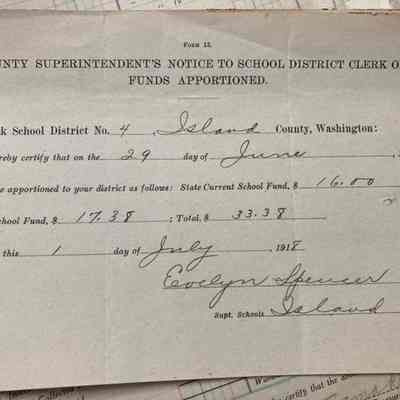 FORM 13.
UNTY SUPERINTENDENT'S NOTICE TO SCHOOL DISTRICT CLERK O
FUNDS APPORTIONED.
k School District No. 4, Island County, Washington:
reby certify that on the 29 day of June
e apportioned to your district as follows: State Current School Fund, $ 16.00
chool Fund, $ 17.38 ; Total, $ 33.38
this 1 day of July , 1918
Evelyn Spencer
Supt. Schools Island